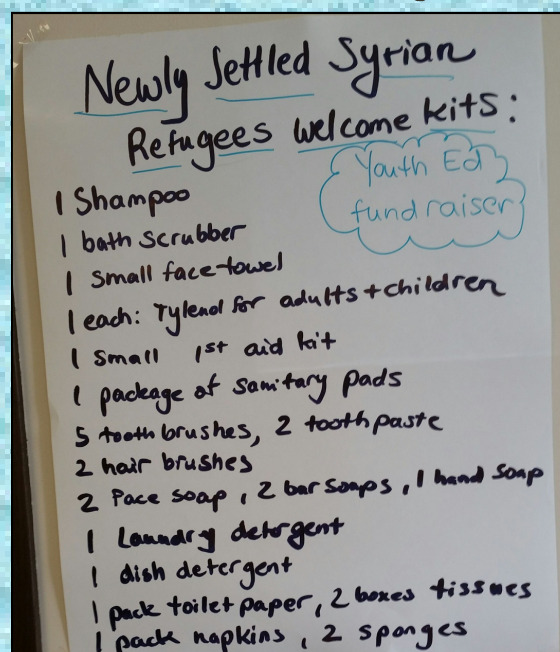 Newly Settled Syrian
Refugees welcome kits:
Youth Ed
fundraiser
1 Shampoo
1 bath scrubber
1 small face towel
1 each: Tylenol for adults + children
1 small 1st aid kit
1 package of sanitary pads
5 tooth brushes, 2 tooth paste
2 hair brushes
2 Face soap, 2 bar soaps, 1 hand soap
1 Laundry detergent
1 dish detergent
1 pack toilet paper, 2 boxes tissues
1 pack napkins, 2 sponges